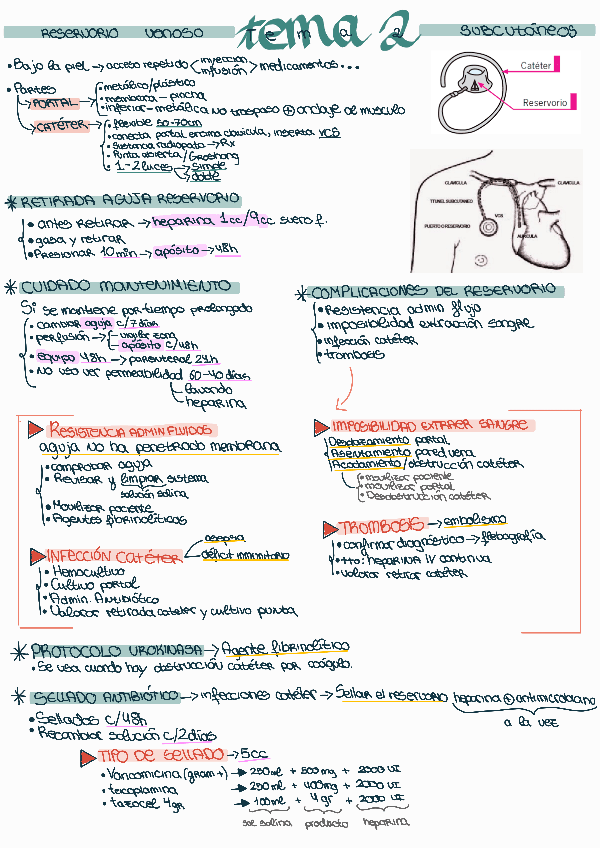 RESERVORIO VENOSO tema 2 SUBCUTÁNEOS
Tema 2
• Bajo la piel → acceso repetido < inyección infusión > medicamentos...
• Partes
PORTAL → • metálico/plástico
• membrana - pincha
• inferior - metálica NO traspaso ⊕ anclaje al musculo
CATÉTER → • flexible 50-70cm
• conecta portal encima clavicula, inserta VCS
• Sustancia radiopata → Rx
• Punta abierta / Groshong
• 1-2 luces → simple
→ doble
Catéter
Reservorio
CLAVICULA
CLAVICULA
TTUNEL SUBCUTÁNEO
VCS
PUERTO O RESERVORIO
AURICULA
* RETIRADA AGUJA RESERVORIO
• antes retirar → heparina 1cc/9cc suero f.
• gasa y retirar
• Presionar 10 min → apósito → 48h
* CUIDADO MANTENIMIENTO
Si se mantiene por tiempo prolongado
• cambiar aguja c/7 dias
• perfusión → - vigilar zona
- apósito c/48h
• equipo 48h → parenteral 24h
• No uso ver permeabilidad 60-40 dias
lavando
heparina
* COMPLICACIONES DEL RESERVORIO
• Resistencia admin flujo
• imposibilidad extracción sangre
• infección catéter
• trombosis
RESISTENCIA ADMIN FLUIDOS
aguja no ha penetrado membrana
• comprobar aguja
• Revisar y limpiar sistema
solución salina
• Movilizar paciente
• Agentes fibrinolíticos
IMPOSIBILIDAD EXTRAER SANGRE
Desplazamiento portal
Asentamiento pared vena
Acodamiento/obstrucción catéter
• movilizar paciente
• movilizar portal
• Desobstrucción catéter
TROMBOSIS → embolismo
• confirmar diagnóstico → flebografía
• tto: heparina IV continua
• valorar retirar catéter
INFECCIÓN CATÉTER < asepsia
déficit inmunitario
• Hemocultivo
• Cultivo portal
• Admin. Antibiótico
• Valorar retirada cateter y cultivo punta
* PROTOCOLO UROKINASA → Agente fibrinolítico
• Se usa cuando hay obstrucción catéter por coágulo.
* SELLADO ANTIBIÓTICO → infecciones catéter → Sellar el reservorio heparina ⊕ antimicrobiano
a la vez
• Sellados c/48h
• Recambiar solución c/2 dias
TIPO DE SELLADO → 5cc
• Vancomicina (gram+) → 250ml + 500mg + 2000 UI
• teicoplamina → 250ml + 400mg + 2000 UI
• tazocel 4gr → 100ml + 4gr + 2000 UI
sol salina producto heparina